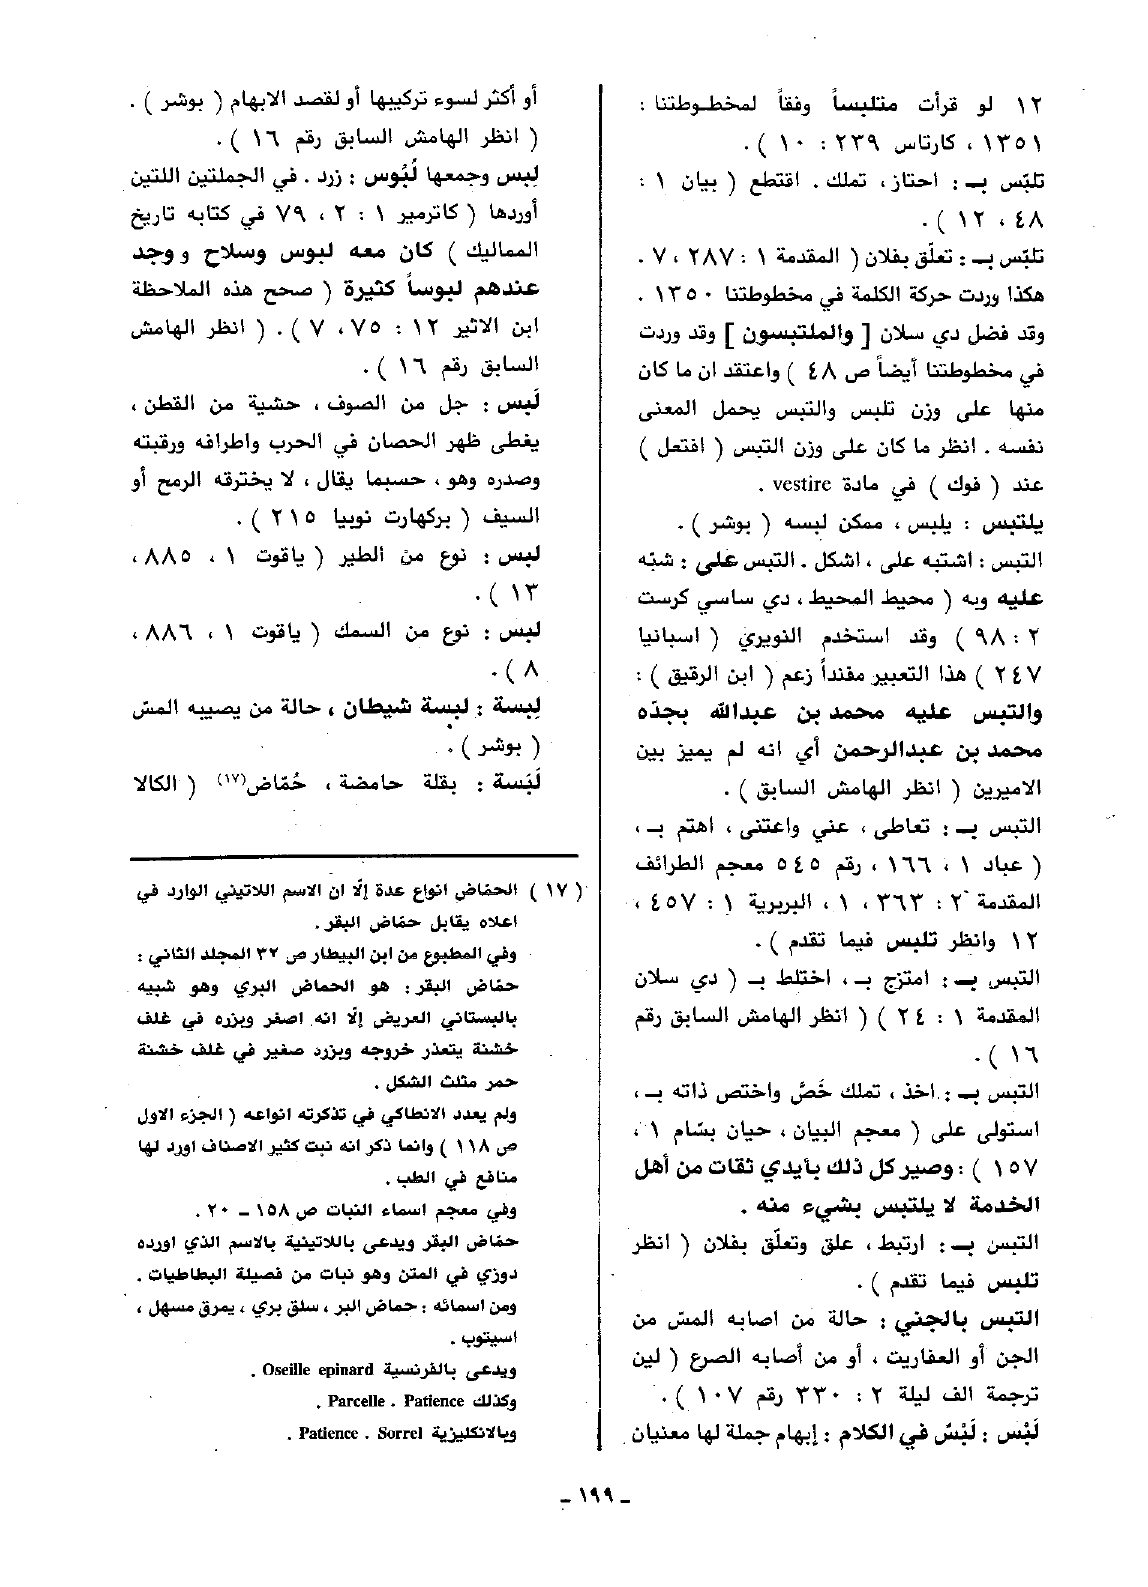 ١٢ لو قرأت متلبساً وفقاً لمخطوطتنا :
١٣٥١ ، كارتاس ٢٣٩ : ١٠ ) .
تلبّس بـ : احتاز ، تملك . اقتطع ( بيان ١ :
٤٨ ، ١٢ ) .
تلبّس بـ : تعلّق بفلان ( المقدمة ١ : ٢٨٧ ، ٧ .
هكذا وردت حركة الكلمة في مخطوطتنا ١٣٥٠ .
وقد فضل دي سلان [ والملتبسون ] وقد وردت
في مخطوطتنا أيضاً ص ٤٨ ) واعتقد ان ما كان
منها على وزن تلبس والتبس يحمل المعنى
نفسه . انظر ما كان على وزن التبس ( افتعل )
عند ( فوك ) في مادة vestire .
يلتبس : يلبس ، ممكن لبسه ( بوشر ) .
التبس : اشتبه على ، اشكل . التبس على : شبّه
عليه وبه ( محيط المحيط ، دي ساسي كرست
٢ : ٩٨ ) وقد استخدم النويري ( اسبانيا
٢٤٧ ) هذا التعبير مفنداً زعم ( ابن الرقيق ) :
والتبس عليه محمد بن عبدالله بجدّه
محمد بن عبدالرحمن أي انه لم يميز بين
الاميرين ( انظر الهامش السابق ) .
التبس بـ : تعاطى ، عني واعتنى ، اهتم بـ ،
( عباد ١ ، ١٦٦ ، رقم ٥٤٥ معجم الطرائف
المقدمة ٢ : ٣٦٣ ، ١ ، البربرية ١ : ٤٥٧ ،
١٢ وانظر تلبس فيما تقدم ) .
التبس بـ : امتزج بـ ، اختلط بـ ( دي سلان
المقدمة ١ : ٢٤ ) ( انظر الهامش السابق رقم
١٦ ) .
التبس بـ : اخذ ، تملك خَصَّ واختص ذاته بـ ،
استولى على ( معجم البيان ، حيان بسّام ١ ،
١٥٧ ) : وصير كل ذلك بأيدي ثقات من أهل
الخدمة لا يلتبس بشيء منه .
التبس بـ : ارتبط ، علق وتعلّق بفلان ( انظر
تلبس فيما تقدم ) .
التبس بالجني : حالة من اصابه المسّ من
الجن أو العفاريت ، أو من أصابه الصرع ( لين
ترجمة الف ليلة ٢ : ٣٣٠ رقم ١٠٧ ) .
لَبْس : لَبْسٌ في الكلام : إبهام جملة لها معنيان
أو أكثر لسوء تركيبها أو لقصد الابهام ( بوشر ) .
( انظر الهامش السابق رقم ١٦ ) .
لِبس وجمعها لُبُوس : زرد . في الجملتين اللتين
أوردها ( كاترمير ١ : ٢ ، ٧٩ في كتابه تاريخ
المماليك ) كان معه لبوس وسلاح و وجد
عندهم لبوساً كثيرة ( صحح هذه الملاحظة
ابن الاثير ١٢ : ٧٥ ، ٧ ) . ( انظر الهامش
السابق رقم ١٦ ) .
لَبس : جل من الصوف ، حشية من القطن ،
يغطى ظهر الحصان في الحرب واطرافه ورقبته
وصدره وهو ، حسبما يقال ، لا يخترقه الرمح أو
السيف ( بركهارت نوبيا ٢١٥ ) .
لبس : نوع من الطير ( ياقوت ١ ، ٨٨٥ ،
١٣ ) .
لبس : نوع من السمك ( ياقوت ١ ، ٨٨٦ ،
٨ ) .
لِبسة : لبسة شيطان ، حالة من يصيبه المسّ
( بوشر ) .
لَبَسة : بقلة حامضة ، حُمّاض(١٧) ( الكالا
( ١٧ ) الحمّاض انواع عدة إلّا ان الاسم اللاتيني الوارد في
اعلاه يقابل حمّاض البقر .
وفي المطبوع من ابن البيطار ص ٣٢ المجلد الثاني :
حمّاض البقر : هو الحماض البري وهو شبيه
بالبستاني العريض إلّا انه اصفر وبزره في غلف
خشنة يتعذر خروجه وبزرد صغير في غلف خشنة
حمر مثلث الشكل .
ولم يعدد الانطاكي في تذكرته انواعه ( الجزء الاول
ص ١١٨ ) وانما ذكر انه نبت كثير الاصناف اورد لها
منافع في الطب .
وفي معجم اسماء النبات ص ١٥٨ – ٢٠ .
حمّاض البقر ويدعى باللاتينية بالاسم الذي اورده
دوزي في المتن وهو نبات من فصيلة البطاطيات .
ومن اسمائه : حماض البر ، سلق بري ، يمرق مسهل ،
اسيتوب .
ويدعى بالفرنسية Oseille epinard .
وكذلك Parcelle . Patience .
وبالانكليزية Patience . Sorrel .
ـ ١٩٩ ـ